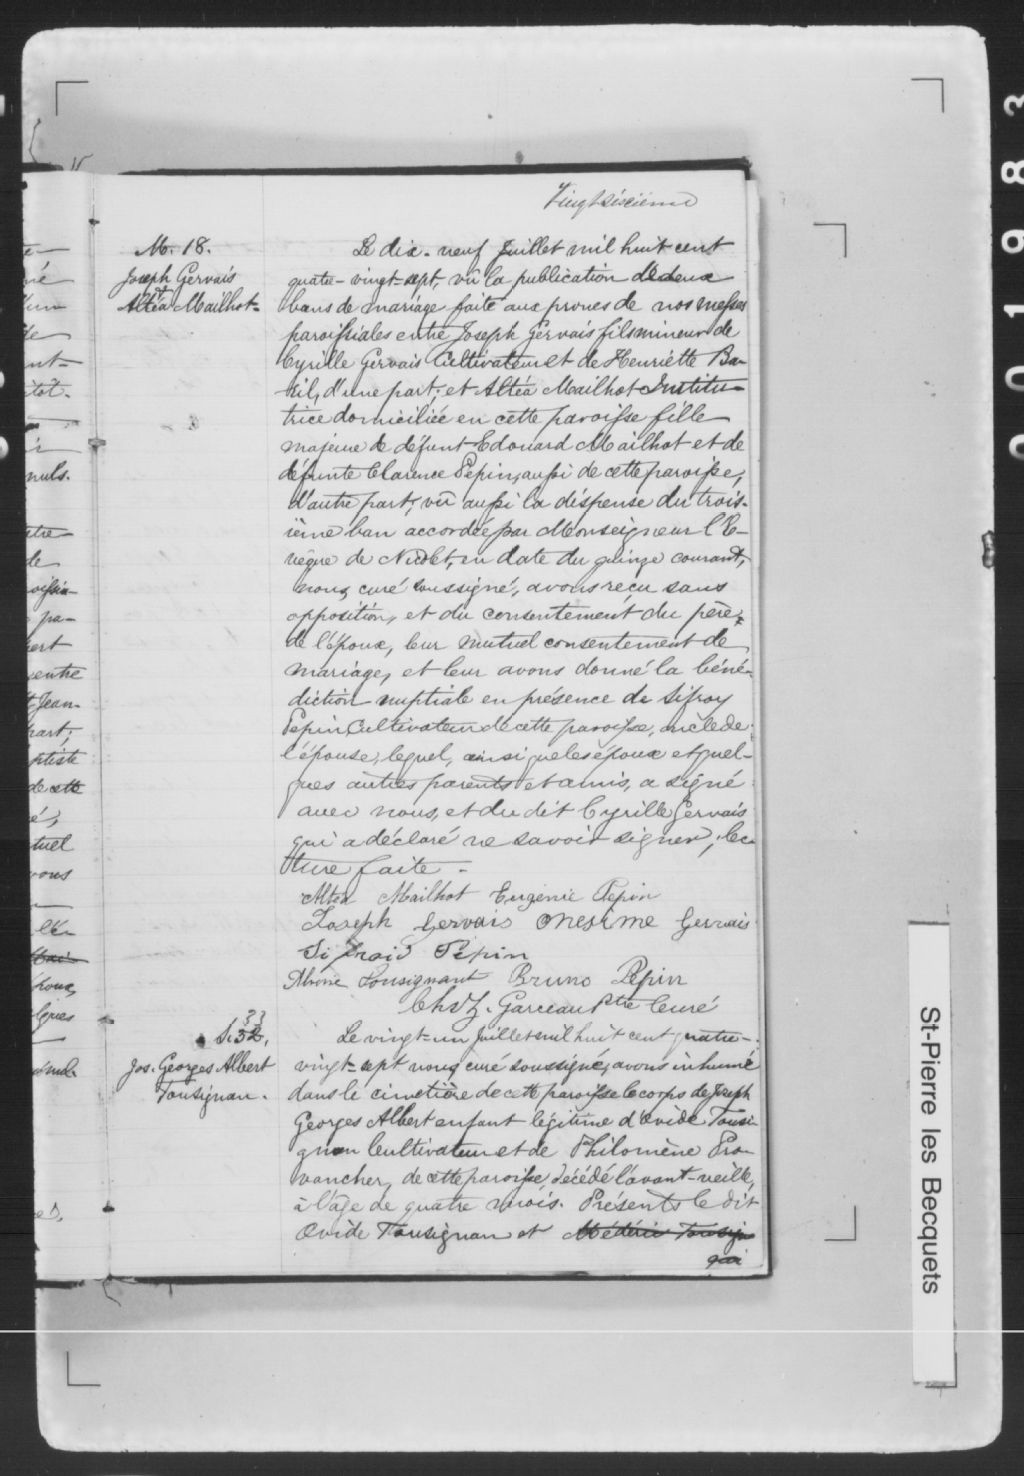 Vingtsixième
M. 18.
Joseph Gervais
et
Altéa Mailhot
Le dix-neuf Juillet mil huit cent
quatre-vingt-sept, vû la publication de deux
bans de mariage faite aux prones de nos messes
paroissiales entre Joseph Gervais fils mineur de
Cyrille Gervais Cultivateur et de Henriette Ba-
ril, d'une part; et Altéa Mailhot Institu-
trice domiciliée en cette paroisse fille
majeure de défunt Edouard Mailhot et de
défunte Clarence Pepin, aussi de cette paroisse,
d'autre part; vû aussi la dispense du trois-
ième ban accordée par Monseigneur l'E-
vêque de Nicolet, en date du quinze courant,
nous curé soussigné, avons reçu sans
opposition, et du consentement du père
de l'époux, leur mutuel consentement de
mariage, et leur avons donné la béné-
diction nuptiale en présence de Sifroy
Pepin Cultivateur de cette paroisse, oncle de
l'épouse, lequel, ainsi que les époux et quel-
ques autres parents et amis, a signé
avec nous, et du dit Cyrille Gervais
qui a déclaré ne savoir signer, lec-
ture faite.
Altéa Mailhot Eugénie Pepin
Joseph Gervais Onesime Gervais
Sifroid Pepin
Tousignant Bruno Pepin
Chs Z. Garceau Ptre Curé
33
S. 32.
Jos. Georges Albert
Tousignan.
Le vingt-un Juillet mil huit cent quatre-
vingt-sept nous curé soussigné, avons inhumé
dans le cimetière de cette paroisse le corps de Joseph
Georges Albert enfant légitime d'Ovide Tousi-
gnan Cultivateur et de Philomène Pro-
vancher, de cette paroisse, décédé l'avant-veille,
à l'âge de quatre mois. Présents le dit
Ovide Tousignan et Médéric Tousign
qui
St-Pierre les Becquets